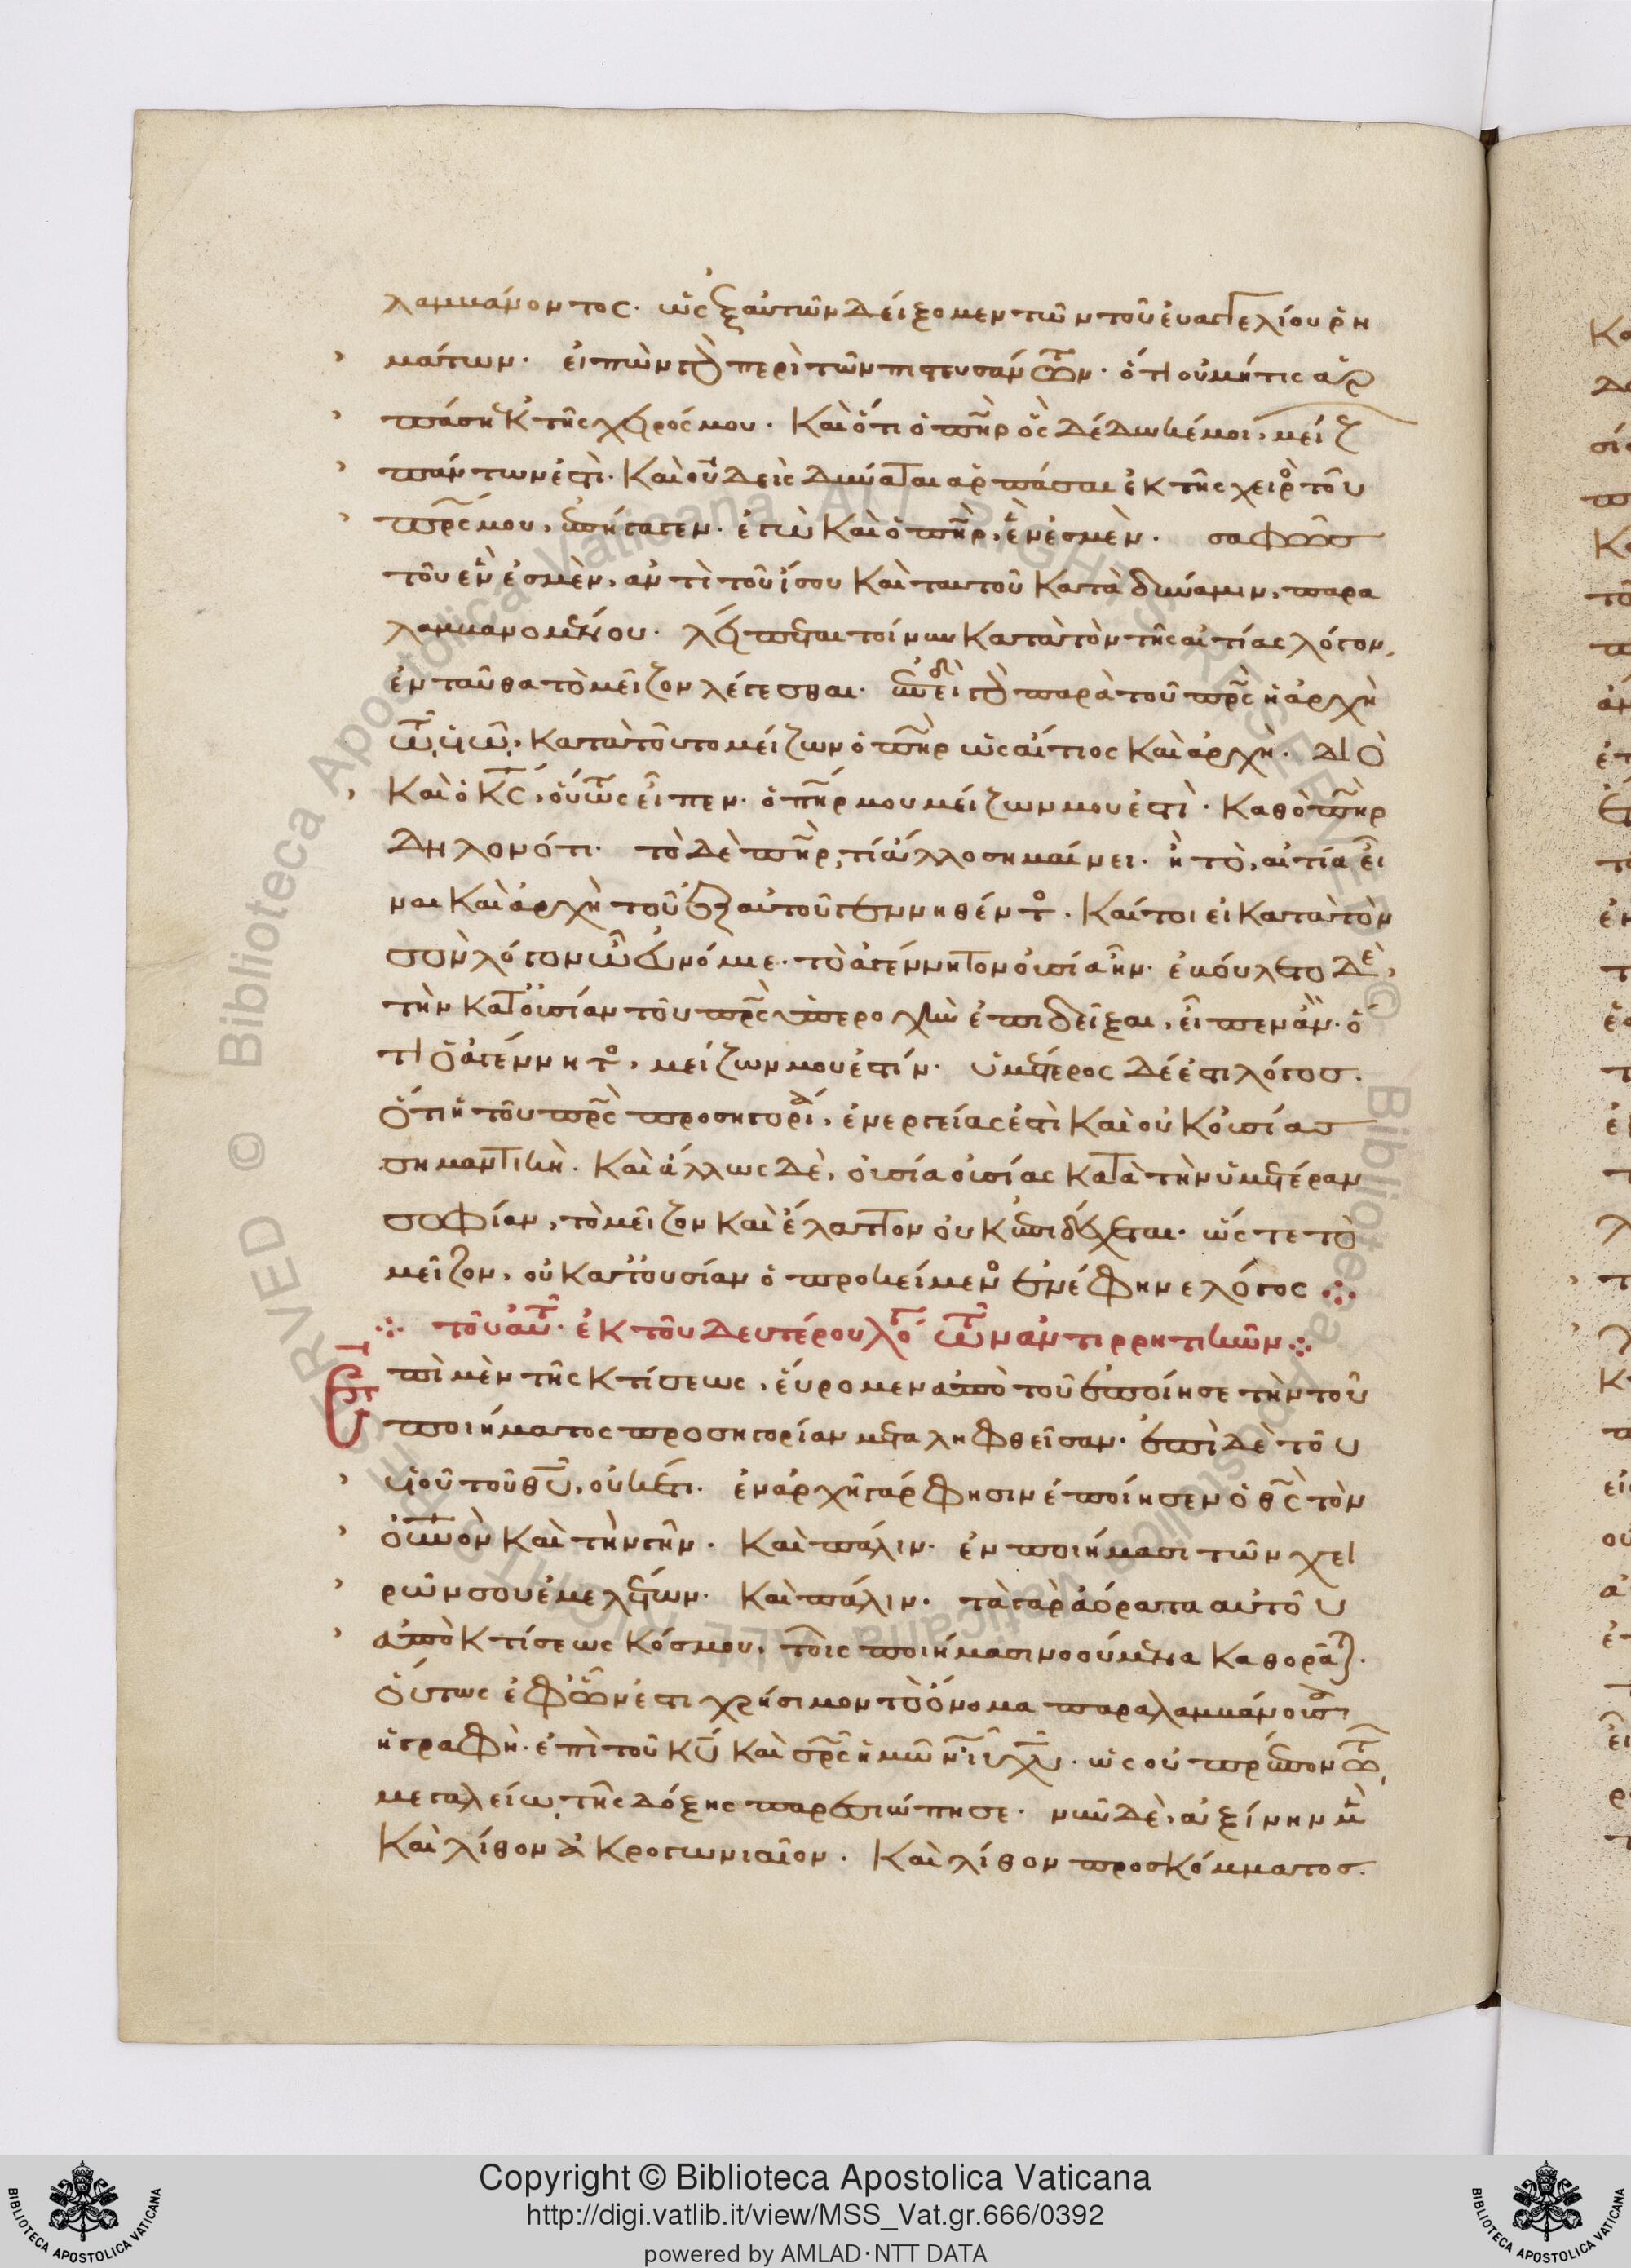 λαμβάνοντος· ὡς ἐξ αὐτῶν δείξομεν τῶν τοῦ εὐαγγελίου ῥη
μάτων· εἰπὼν γὰρ περὶ τῶν πιστευσάντων· ὅτι οὐ μή τις ἁρ
πάσῃ ἐκ τῆς χειρός μου· καὶ ὅτι ὁ πηρ ὃς δέδωκέ μοι, μείζ
πάντων ἐστὶ· καὶ οὐδεὶς δύναται ἁρπάσαι ἐκ τῆς χειρὸς τοῦ
πρς μου, ἐπήγαγεν· ἐγὼ καὶ ὁ πηρ, ἕν ἐσμὲν· σαφῶς
τοῦ ἕν ἐσμὲν, ἀντὶ τοῦ ἴσου καὶ ταυτοῦ κατὰ δύναμιν, παρα
λαμβανομένου· λείπεται τοίνυν κατὰ τὸν τῆς αἰτίας λόγον,
ἐνταῦθα τὸ μεῖζον λέγεσθαι· ἐπειδὴ γὰρ παρὰ τοῦ πρς ἡ ἀρχὴ
τῷ υἱῷ, κατὰ τοῦτο μείζων ὁ πηρ ὡς αἴτιος καὶ ἀρχὴ· διὸ
καὶ ὁ κς, οὕτως εἶπεν· ὁ πηρ μου μείζων μου ἐστὶ· καθὸ πηρ
δηλονότι· τὸ δὲ πηρ, τί ἄλλο σημαίνει· ἢ τὸ, αἰτία εἶ
ναι καὶ ἀρχὴ τοῦ ἐξ αὐτοῦ γεννηθέντος· καίτοι εἰ κατὰ τὸν
σὸν λόγον ὦ εὐνόμιε· τὸ ἀγέννητον οὐσία ἦν· ἐβούλετο δὲ,
τὴν κατ' οὐσίαν τοῦ πρς ὑπεροχὴν ἐπιδεῖξαι, εἶπεν ἄν· ὅ
τι ὁ ἀγέννητος, μείζων μου ἐστίν· ὑμέτερος δέ ἐστι λόγος·
ὅτι ἡ τοῦ πρς προσηγορία, ἐνεργείας ἐστὶ καὶ οὐκ οὐσίας
σημαντικὴ· καὶ ἄλλως δὲ, οὐσία οὐσίας κατὰ τὴν ὑμετέραν
σοφίαν, τὸ μεῖζον καὶ ἔλαττον οὐκ ἐπιδέχεται· ὥστε τὸ
μεῖζον, οὐ κατ' οὐσίαν ὁ προκείμενος ἐνέφηνε λόγος ⁘
⁘ τοῦ αὐτοῦ· ἐκ τοῦ δευτέρου λό τῶν ἀντιρρητικῶν ⁘
Ἐπὶ μὲν τῆς κτίσεως, εὕρομεν ἀπὸ τοῦ ἐποίησε τὴν τοῦ
ποιήματος προσηγορίαν μεταληφθεῖσαν· ἐπὶ δὲ τοῦ
υἱοῦ τοῦ θυ, οὐκέτι· ἐν ἀρχῇ γάρ φησιν ἐποίησεν ὁ θς τὸν
οὐνον καὶ τὴν γῆν· καὶ πάλιν· ἐν ποιήμασι τῶν χει
ρῶν σου ἐμελέτων· καὶ πάλιν· τὰ γὰρ ἀόρατα αὐτοῦ
ἀπὸ κτίσεως κόσμου, τοῖς ποιήμασι νοούμενα καθορᾶται·
οὕτως ἐφ' ὧν ἐστι χρήσιμον τὸ ὄνομα παραλαμβάνουσα
ἡ γραφὴ· ἐπὶ τοῦ κυ καὶ σρς ἡμῶν ιυ χυ· ὡς οὐ πρέπον τῷ
μεγαλείῳ τῆς δόξης παρεσιώπησε· νῦν δὲ, ἀξίνην μὲν
καὶ λίθον ἀκρογωνιαῖον· καὶ λίθον προσκόμματος·